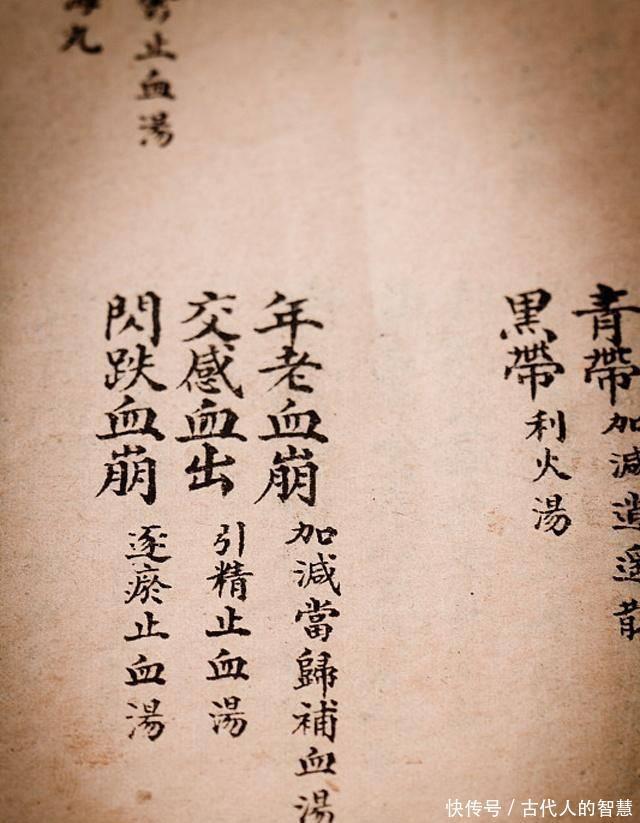 青帶 加減逍遥散
黑帶 利火湯
年老血崩 加減當歸補血湯
交感血出 引精止血湯
閃跌血崩 逐瘀止血湯
止血湯
海丸
快传号/古代人的智慧